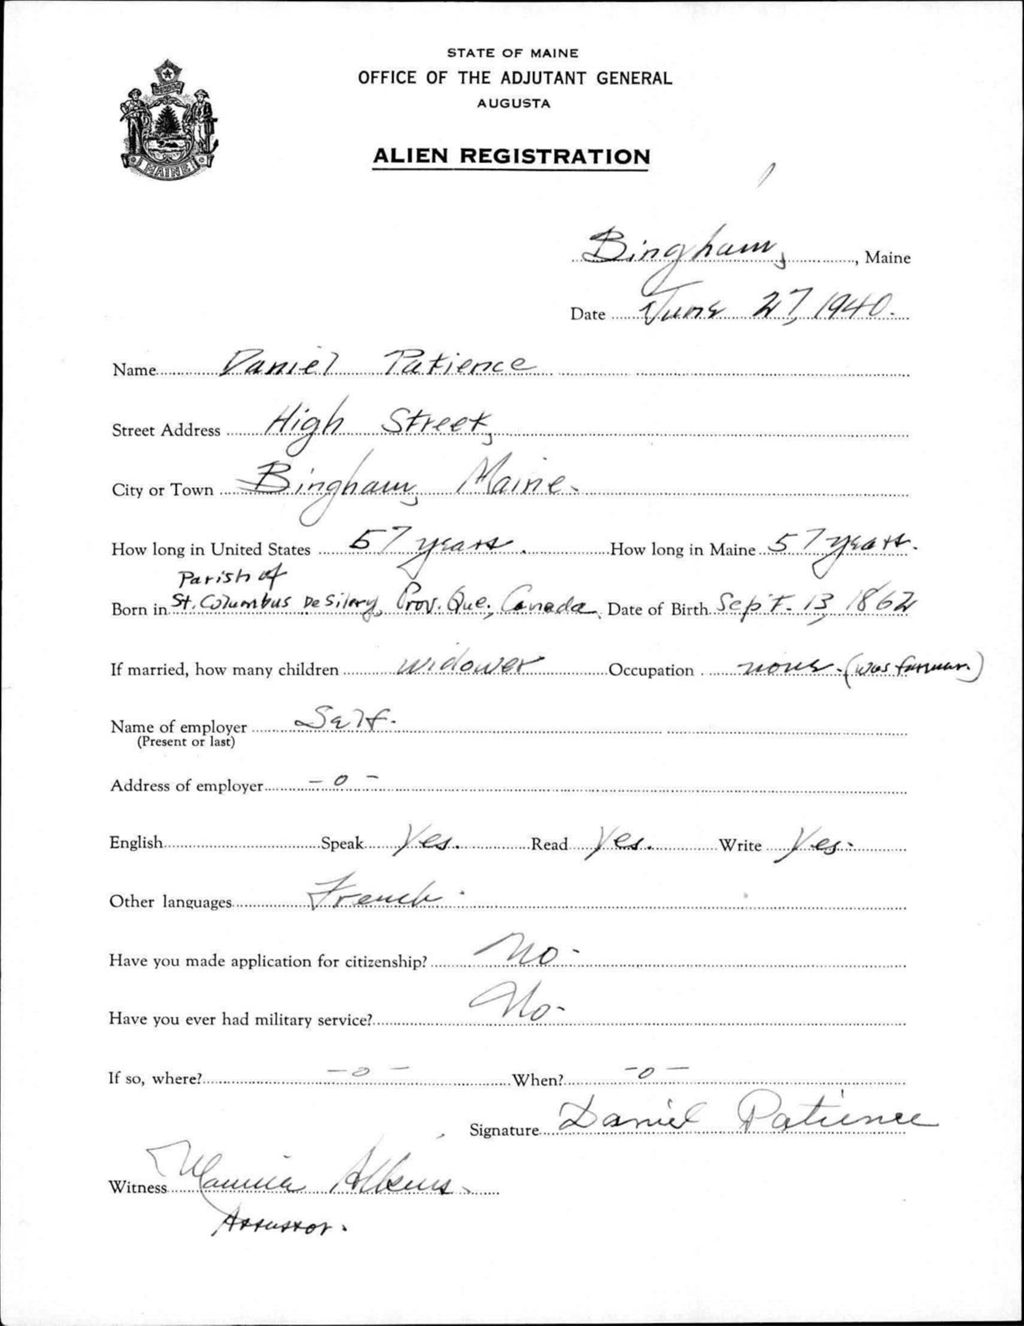 STATE OF MAINE
OFFICE OF THE ADJUTANT GENERAL
AUGUSTA
MAINE
ALIEN REGISTRATION
Bingham, , Maine
Date June 27, 1940.
Name Daniel Patience
Street Address High Street,
City or Town Bingham, Maine.
How long in United States 57 years. How long in Maine 57 years.
Parish of
Born in St. Columbus De Silery, Prov. Que, Canada Date of Birth Sept. 13, 1862
If married, how many children widower Occupation none. (was farmer.)
Name of employer Self.
(Present or last)
Address of employer - 0 -
English Speak Yes. Read Yes. Write Yes.
Other languages French.
Have you made application for citizenship? No-
Have you ever had military service? No-
If so, where? -0- When? -0-
Signature Daniel Patience
Witness
Assessor.